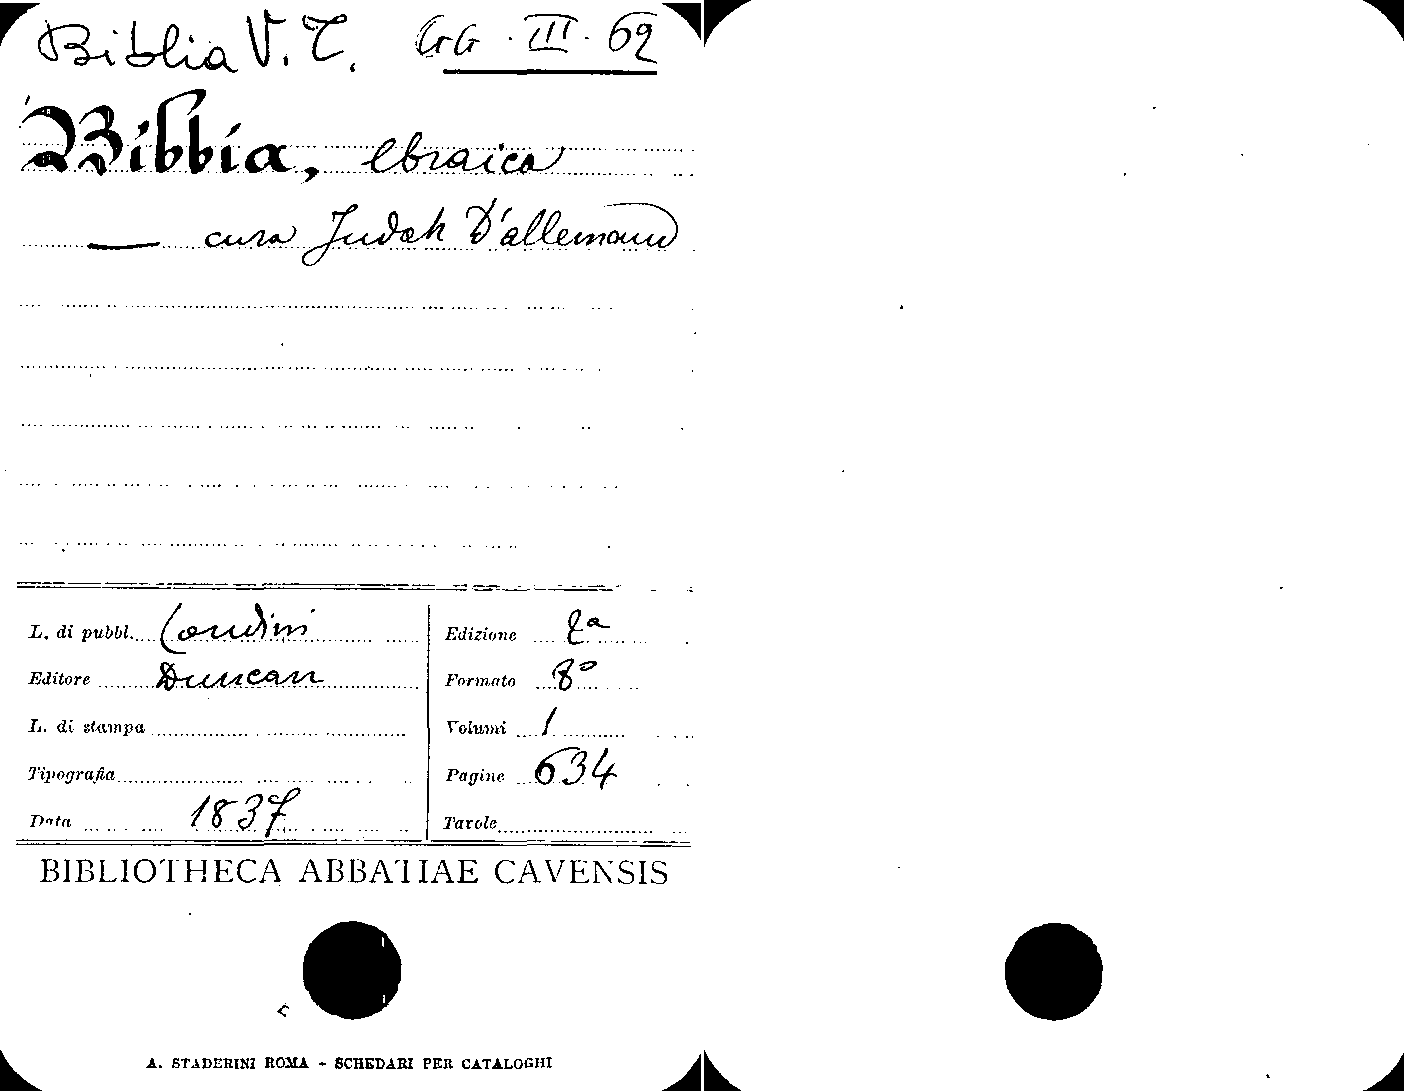 Biblia V. T. GG. III. 69
Bibbia, ebraica
— cura Judah D'allemand
L. di pubbl. Londini
Edizione 2a
Editore Duncan
Formato 8°
L. di stampa
Volumi 1
Tipografia
Pagine 634
Data 1837
Tavole
BIBLIOTHECA ABBATIAE CAVENSIS
A. STADERINI ROMA - SCHEDARI PER CATALOGHI